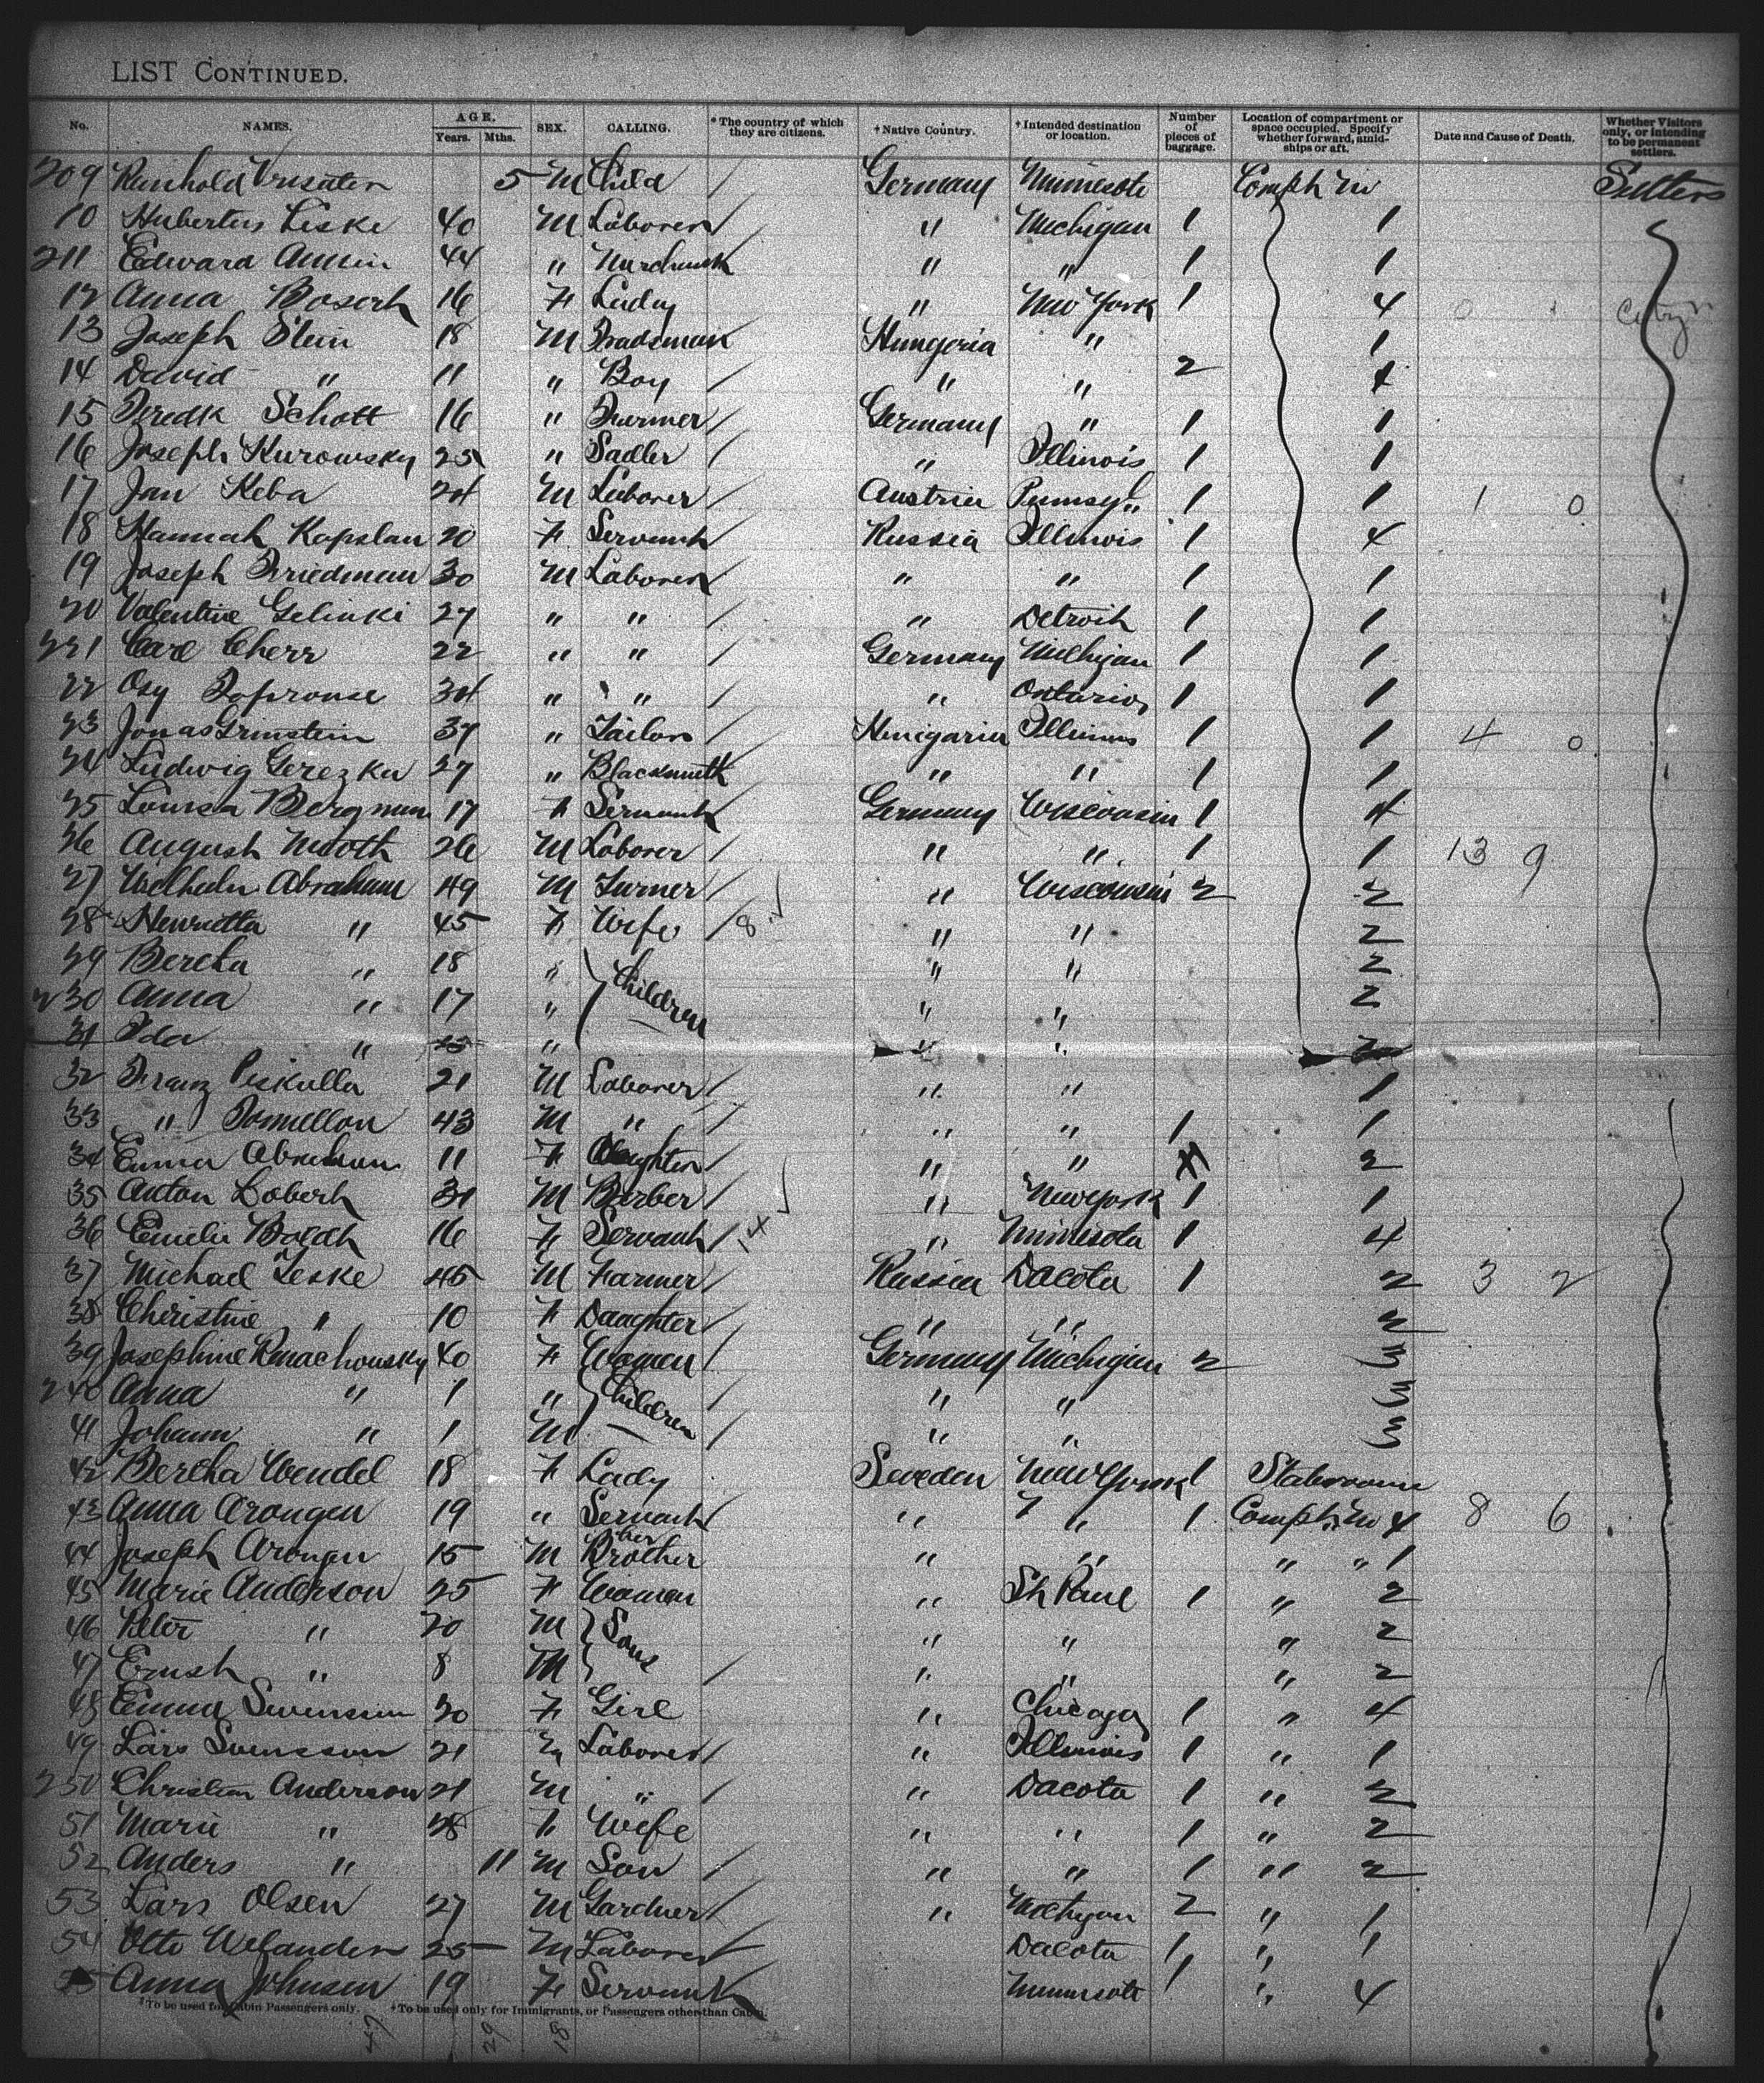 LIST CONTINUED.
No. NAMES. AGE. Years. Mths. SEX. CALLING. *The country of which they are citizens. †Native Country. †Intended destination or location. Number of pieces of baggage. Location of compartment or space occupied. Specify whether forward, amidships or aft. Date and Cause of Death. Whether Visitors only, or intending to be permanent settlers.
209 Reinhold 5 M Child / Germany Minnesota Compt Settlers
10 Hubertus Leske 40 M Laborer / " Michigan 1 1
211 Edward 44 " " " 1 1
12 Anna 16 F Lady " New York 1 4
13 Joseph Stein 18 M Tradsman Hungaria " 1
14 David " 11 " Boy / " " 2
15 Fredk Schott 16 " / Germany " 1 1
16 Joseph Kurowsky 25 " Sadler / " Illinois 1 1
17 Jan Keba 24 M Laborer / Austria Pennsy" 1 1 1 0
18 Hannah Kapslan 20 F Servant Russia Illinois 1 4
19 Joseph Friedman 30 M Laborer " " 1 1
20 Valentine Gelinki 27 " " / " Detroit 1 1
221 Carl Cherr 22 " " / Germany Michigan 1 1
22 34 " " / " Ontario 1 1
23 Jonas Grinstein 37 " Tailor / Hungaria Illinois 1 1 4 0
24 Ludwig Gerezka 27 " Blacksmith " " 1 1
25 Louisa Bergman 17 F Servant Germany Wisconsin 1 4
26 August 26 M Laborer / " " 1 1 13 9
27 Wilhelm Abraham 49 M / " Wisconsin 2 2
28 Henrietta " 45 F Wife / 8 " " 2
29 Bertha " 18 " Children " " 2
230 Anna " 17 " " " 2
31 Ida " " " "
32 Franz Piskulla 21 M Laborer / " " 1
33 " 43 M " / " " 1 1
34 Emma Abraham 11 F Daughter / " " 2
35 Anton 31 M Barber / " New York 1 1
36 Emilie Boldt 16 F Servant / 14 " Minnesota 1 4
37 Michael Leske 45 M Farmer / Russia Dacota 1 2 3 2
38 Cheristine " 10 F Daughter / " " 2
39 Josephine 40 F Women / Germany Michigan 2 3
240 Anna " 1 " Children / " " 3
41 Johann " 1 M / " " 3
42 Bertha Wendel 18 F Lady Sweden New York 1 Stateroom
43 Anna Arongen 19 " Servant " " 1 Compt 4 8 6
44 Joseph Arongen 15 M her Brother " " " " 1
45 Marie Anderson 25 F Women " St Paul 1 " 2
46 Peter " 20 M Sons " " " 2
47 Ernst " 8 M / " " " 2
48 Emma Swensson 20 F Girl " Chicago 1 " 4
49 Lars Svensson 21 Laborer / " Illinois 1 " 1
250 Christian Anderson 21 M " / " Dacota 1 " 2
51 Marie " 28 F Wife " " 1 " 2
52 Anders " 11 M Son / " " 1 " 2
53 Lars Olsen 27 M Gardner / " Michigan 2 " 1
54 Otto Welander 25 M Laborer Dacota 1 " 1
55 Anna Johnsen 19 F Servant Minnesota 1 " 4
*To be used for Cabin Passengers only. †To be used only for Immigrants, or Passengers other than Cabin.
47 29 18